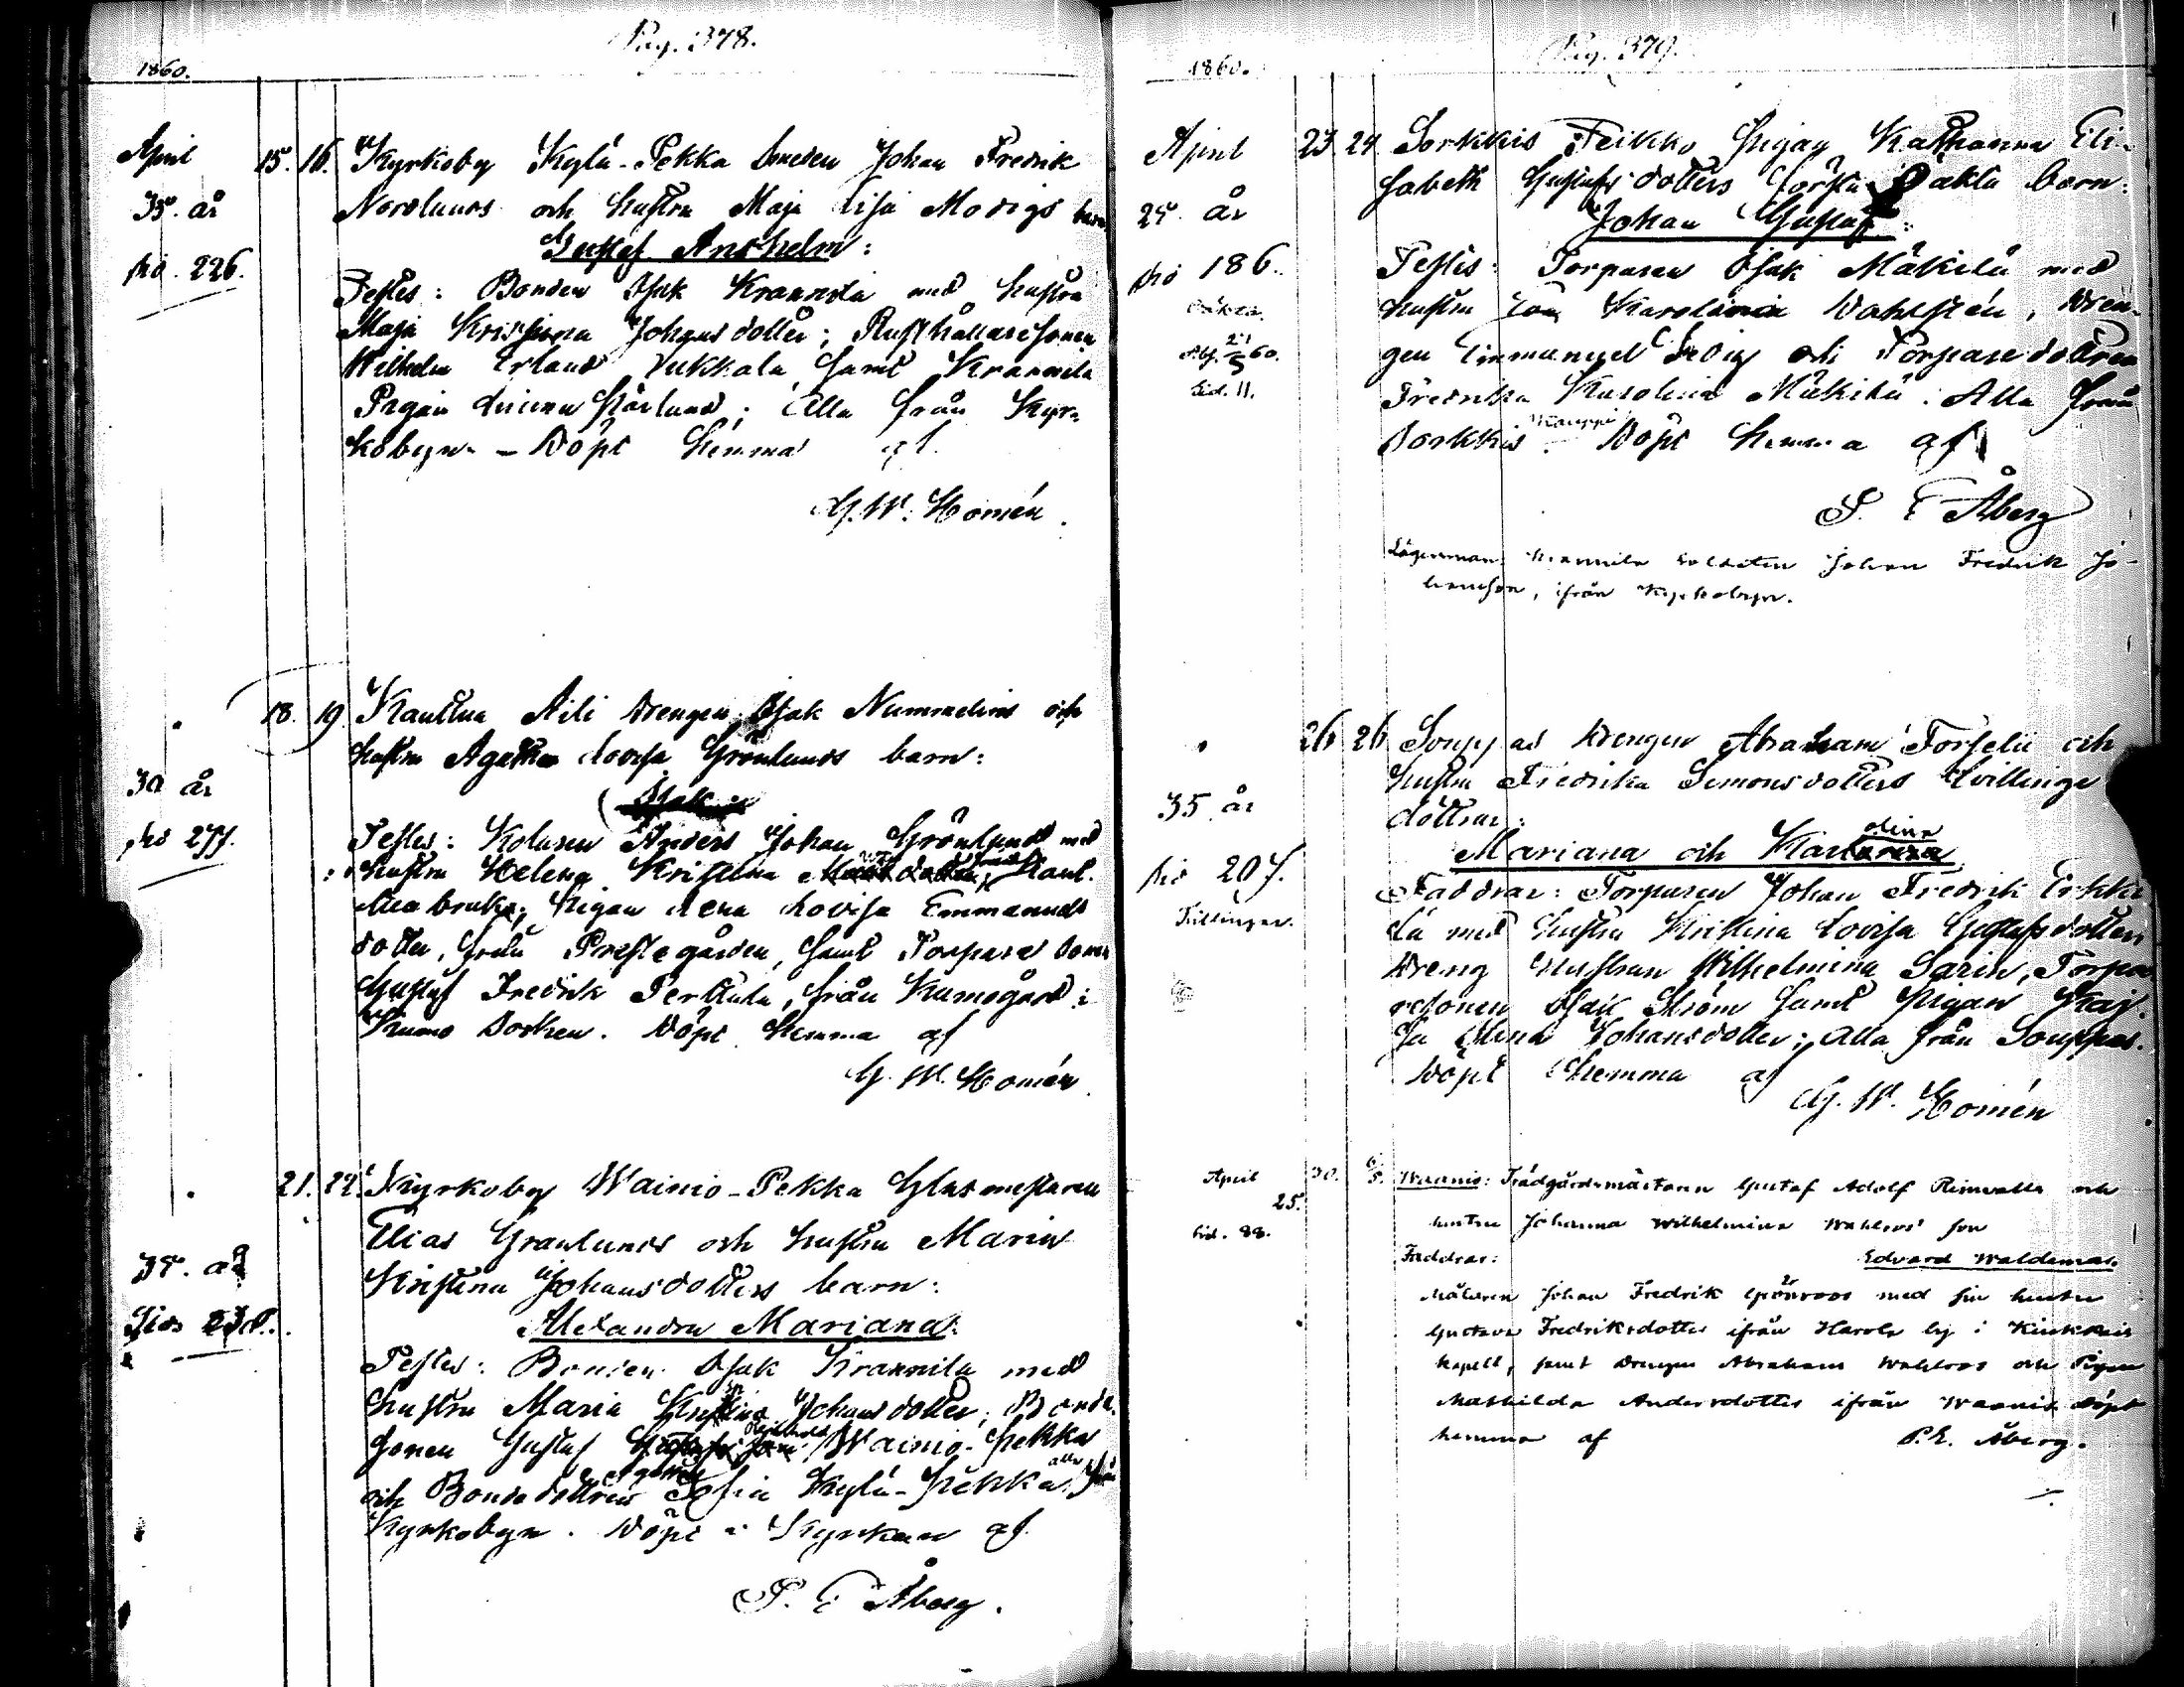 Pag. 378.
1860.
April 15. 16. Kyrkoby Kylä-Pekka Smeden Johan Fredrik
35. år Nordlunds och hustru Maja Lisa Modigs barn
Gustaf Anshelm:
pro. 226.
Testes: Bonden Isak Krannila med hustru
Maja Kristina Johansdotter; Rusthållaresonen
Wilhelm Erland Jukkala samt Krannila
Pigan; Alla från Kyr-
kobyn. – Döpt hemma af
G. W. Homén.
18. 19 Kauttua Aili drengen Isak Nummelins och
hustru Agatha Lovisa Grönlunds barn:
30 år
Isak
pro 277.
Testes: Kolaren Anders Johan Grönlund med
hustru Helena Kristina
bruk; Pigan Lena Lovisa Emmanuels
dotter, från Prestegården, samt Torpare sonen
Gustaf Fredrik Perttula, från Kumogård i
Kumo Socken. Döpt hemma af
G. W. Homén.
21. 22. Kyrkoby Wainio-Pekka Glasmestaren
Elias Granlunds och hustru Maria
Kristina Johansdotters barn:
35. år
Alexandra Mariana.
Testes: Bonden Isak Krannila med
hustru Maria Kristina Johansdotter; Bonde-
sonen Gustaf Wainio-Pekka
och Bondedottren Sofia Kylä-Pekka alla från
Kyrkobyn. Döpt i Kyrkan af
P. E Åberg.
Pag. 379.
1860.
April 23 24 Sorkkis Feikko pigan Katharina Eli-
sabeth Gustafsdotters första oäkta barn:
25. år
Johan Gustaf:
pro 186.
Oäkta.
Sid. 11.
Testes: Torparen Isak Mäkilä med
hustru Karolina Wahlstén, dren-
gen Emmanuel och Torparedottren
Fredrika Karolina Mäkilä: Alla från
Sorkkis Kauppi. Döpt hemma af
P. E Åberg
Lägersman: Krannila soldaten Johan Fredrik Jo-
hansson, ifrån Kyrkobyn.
26 26 Souppas drengen Abraham Forselii och
hustru Fredrika Simonsdotters tvillinge
döttrar:
35 år
Mariana och Karolina
pro 207.
Tvillingar.
Faddrar: Torparen Johan Fredrik Erkki-
lä med hustru Kristina Lovisa Gustafsdotter,
dreng hustrun Wilhelmina Sarin, Torpa-
resonen Isak Ström samt pigan Kaj-
sa Stina Johansdotter; alla från Souppas.
Döpt hemma af
G. W. Homén
April 30. 6/5. Waanis: Trädgårdsmästaren Gustaf Adolf Rimvalls och
25.
hustru Johanna Wilhelmina Wahlroos' son
Sid. 88.
Faddrar: Edvard Waldemar.
Målaren Johan Fredrik Grönroos med sin hustru
Gustava Fredriksdotter ifrån Harola by i Kiukkais
kapell, samt drengen Abraham Wahlroos och Pigan
Mathilda Andersdotter ifrån Waanis. Döpt
hemma af P. E. Åberg.